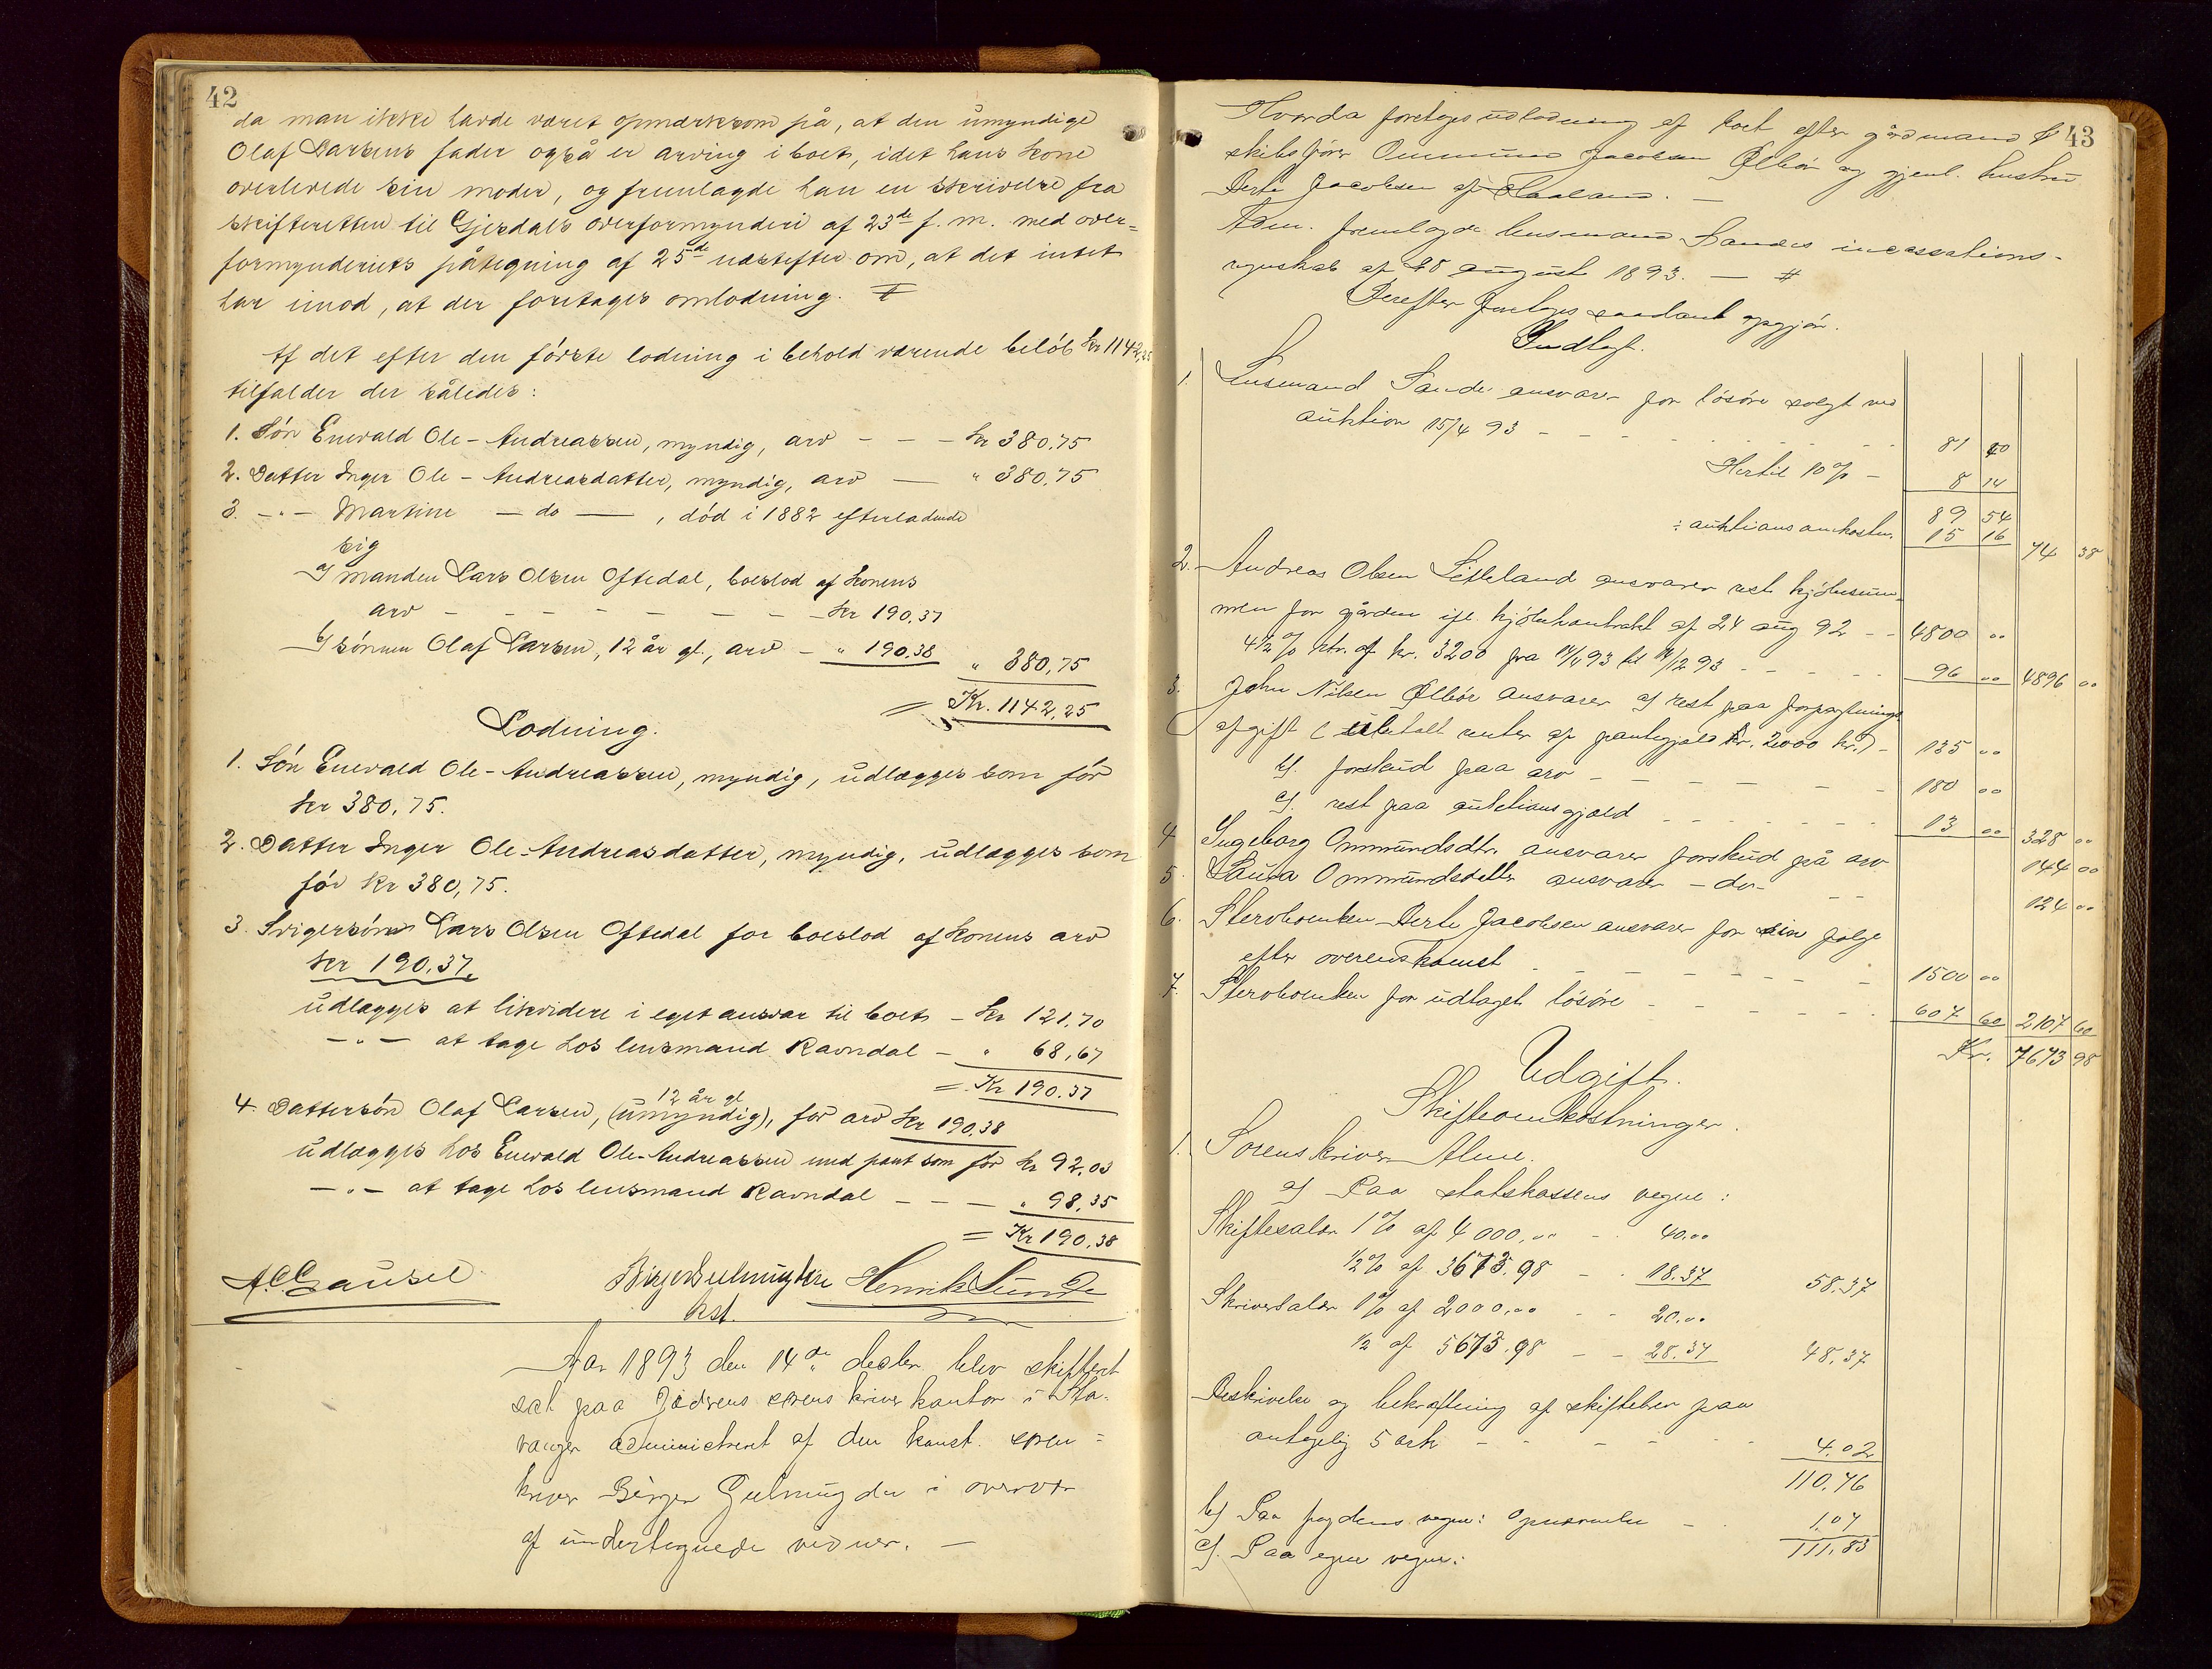 42
da man ikke havde været opmærksom på, at den umyndige
Olaf Larsens fader også er arving i boet, idet hans kone
overlevede sin moder, og fremlagde han en skrivelse fra
skifteretten til Gjesdals overformynderi af 23de f. m. med over=
formynderiets påtegning af 25de næstefter om, at det intet
har imod, at der foretages omlodning.
Af det efter den første lodning i behold værende beløb Kr 1142,25
tilfalder der således:
1. Søn Enevald Ole-Andreassen, myndig, arv - - - Kr 380,75
2. Datter Inger Ole-Andreasdatter, myndig, arv — " 380,75
3. -"- Martine — do —, død i 1882 efterladende
sig
a) manden Lars Olsen Oftedal, boeslod af konens
arv - - - - - - - Kr 190,37
b) sønnen Olaf Larsen, 12 år gl., arv - " 190,38 " 380,75
= Kr. 1142,25
Lodning.
1. Søn Enevald Ole-Andreassen, myndig, udlægges som før
Kr 380,75.
2. Datter Inger Ole-Andreasdatter, myndig, udlægges som
før Kr 380,75.
3. Svigersøn Lars Olsen Oftedal for boeslod af konens arv
Kr 190,37.
udlægges at likvidere i eget ansvar til boet - Kr 121,70
-"- at tage hos lensmand Ravndal - " 68,67
= Kr 190,37
12 år gl
4. Dattersøn Olaf Larsen, (umyndig), for arv Kr 190,38
udlægges hos Enevald Ole-Andreassen med pant som før Kr 92,03
-"- at tage hos lensmand Ravndal - - - " 98,35
= Kr 190,38
A. C. Gausel Birger Gulmugden Henrik Sunde
kst.
Aar 1893 den 14de decbr. blev skifteret
sat paa Jæderens sorenskriverkontor i Sta-
vanger administreret af den konst. soren=
skriver Birger Gulmugden i overvær
af undertegnede vidner. —
43
Hvorda foretoges udlodning af boet efter gårdmand &
skibsfører Ommund Jacobsen Ølbør og gjenl. hustru
Berte Jacobsen af Haaland. —
Adm. fremlagde lensmand Sandes incassations-
regnskab af 28 august 1893. — #
Derefter foretoges saadant opgjør.
Indtægt.
1. Lensmand Sande ansvarer for løsøre solgt ved
auktion 15/4 93 - - - - 81 40
Hertil 10 % - 8 14
89 54
÷ auktionsomkostn. 15 16 74 38
2. Andreas Olsen Litleland ansvarer rest kjøbesum-
men for gården ifl. kjøbekontrakt af 24 aug 92 - - 4800 ,,
4½ % rtr. af kr. 3200 fra 14/4 93 til 14/12 93 - - - 96 ,, 4896 ,,
3. John Nilsen Ølbør ansvarer a) rest paa forpagtnings-
afgift (ubetalt renter af pantegjæld kr. 2000 kr.) - 135 ,,
b). forskud paa arv - - - - - 180 ,,
c). rest paa auktionsgjæld - - - - 13 ,, 328 ,,
4 Ingeborg Ommundsdtr. ansvarer forskud på arv 144 ,,
5. Laura Ommundsdatter ansvarer -do- - - 124 ,,
6. Stervboenken Berte Jacobsen ansvarer for sin følge
efter overenskomst - - - - - 1500 ,,
7. Stervboenken for udlaget løsøre - - - - 607 60 2107 60
Kr. 7673 98
Udgift.
Skifteomkostninger.
1. Sorenskriver Alme.
a) Paa statskassens vegne:
Skiftesalær 1 % af 4000,,, - - 40.,,
½ % af 3673.98 - - 18.37 58.37
Skriversalær 1 % af 2000,,, - - 20.,,
½ af 5673.98 - - 28.37 48.37
Beskrivelse og bekræftning af skiftebrev paa
antagelig 5 ark - - - - 4.02
110.76
b) Paa fogdens vegne: Opnævnelse - 1.07
111.83
c). Paa egne vegne: